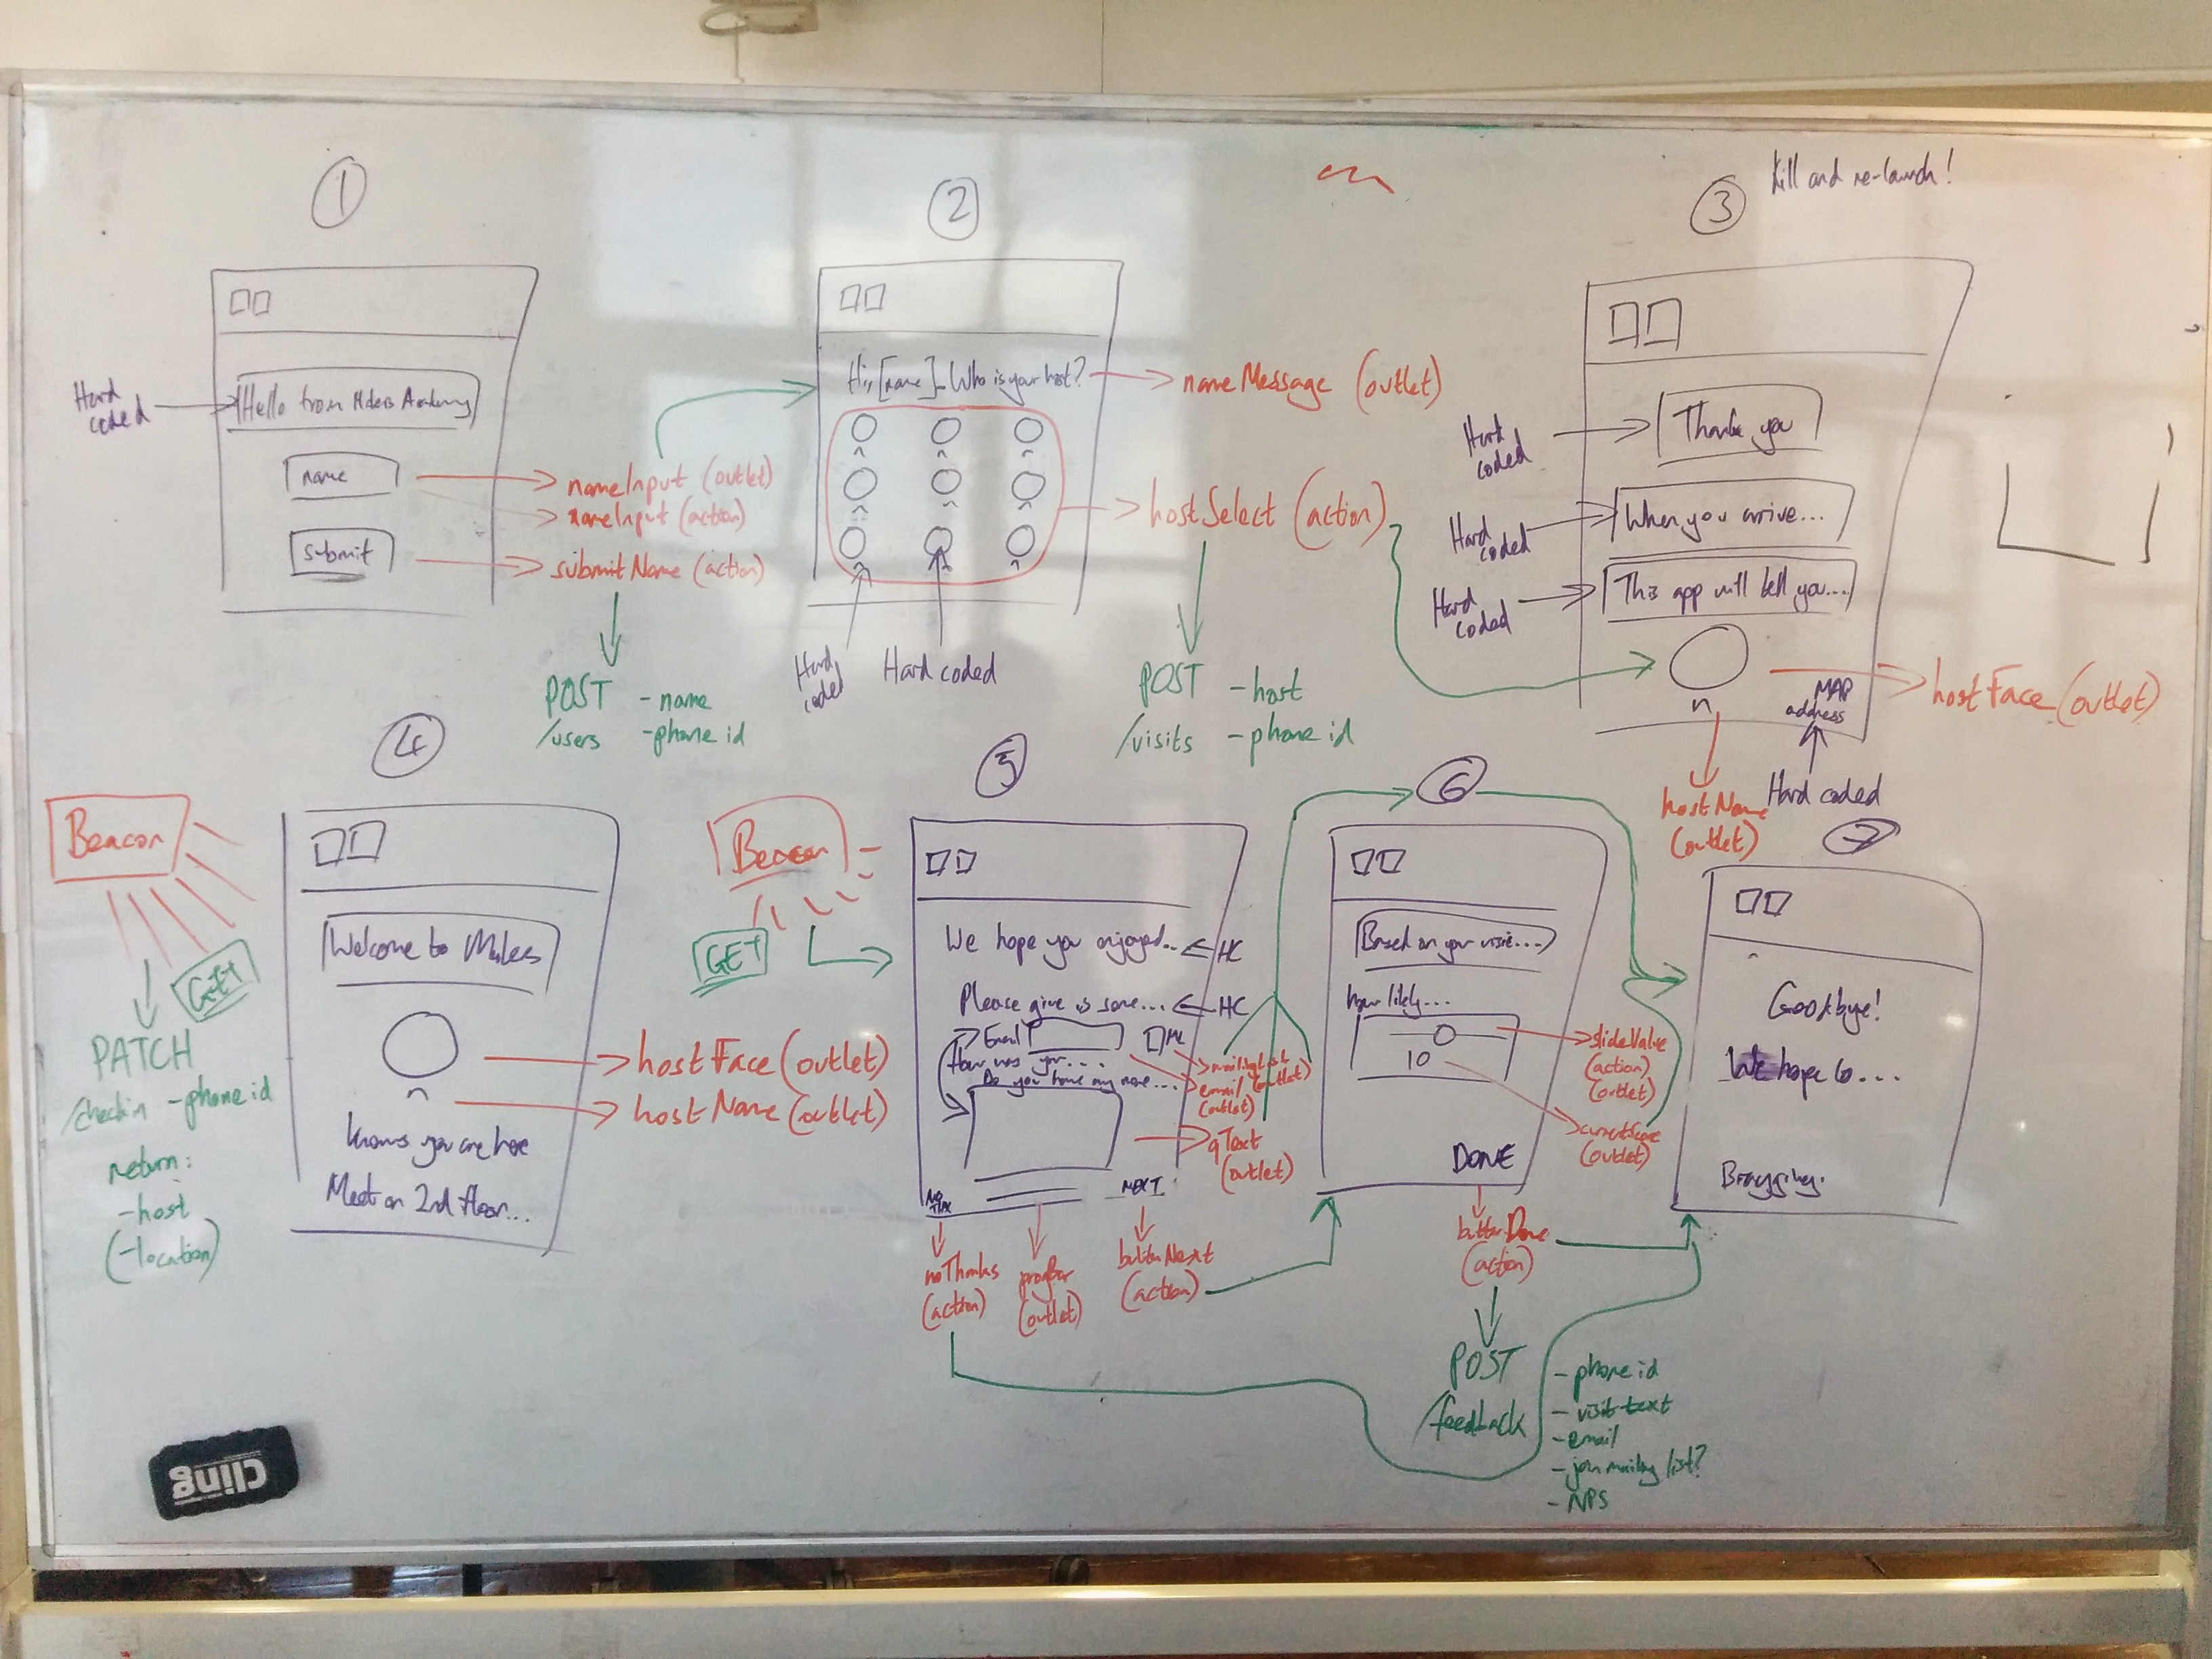 1
Hard
coded
Hello from Makers Academy
name
submit
nameInput (outlet)
nameInput (action)
submitName (action)
POST - name
/users - phone id
2
Hi, [name]. Who is your host?
nameMessage (outlet)
hostSelect (action)
Hard
coded
Hard coded
POST - host
/visits - phone id
3
Kill and re-launch!
Hard
coded
Thank you
Hard
coded
When you arrive...
Hard
coded
This app will tell you...
MAP
address
hostFace (outlet)
hostName
(outlet)
Hard coded
4
Beacon
GET
PATCH
/checkin - phone id
return:
- host
(- location)
Welcome to Makers
hostFace (outlet)
hostName (outlet)
knows you are here
Meet on 2nd floor...
5
Beacon
GET
We hope you enjoyed... HC
Please give is some.... HC
Email ML
How was your....
Do you have any more....
mailingList
(outlet)
email
(outlet)
qText
(outlet)
NO
THX
NEXT
noThanks
(action)
progBar
(outlet)
buttonNext
(action)
6
Based on your visit....
how likely...
10
slideValue
(action)
(outlet)
currentScore
(outlet)
DONE
buttonDone
(action)
POST
/feedback
- phone id
- visit text
- email
- join mailing list?
- NPS
7
Goodbye!
We hope to...
Bragging.
Cling